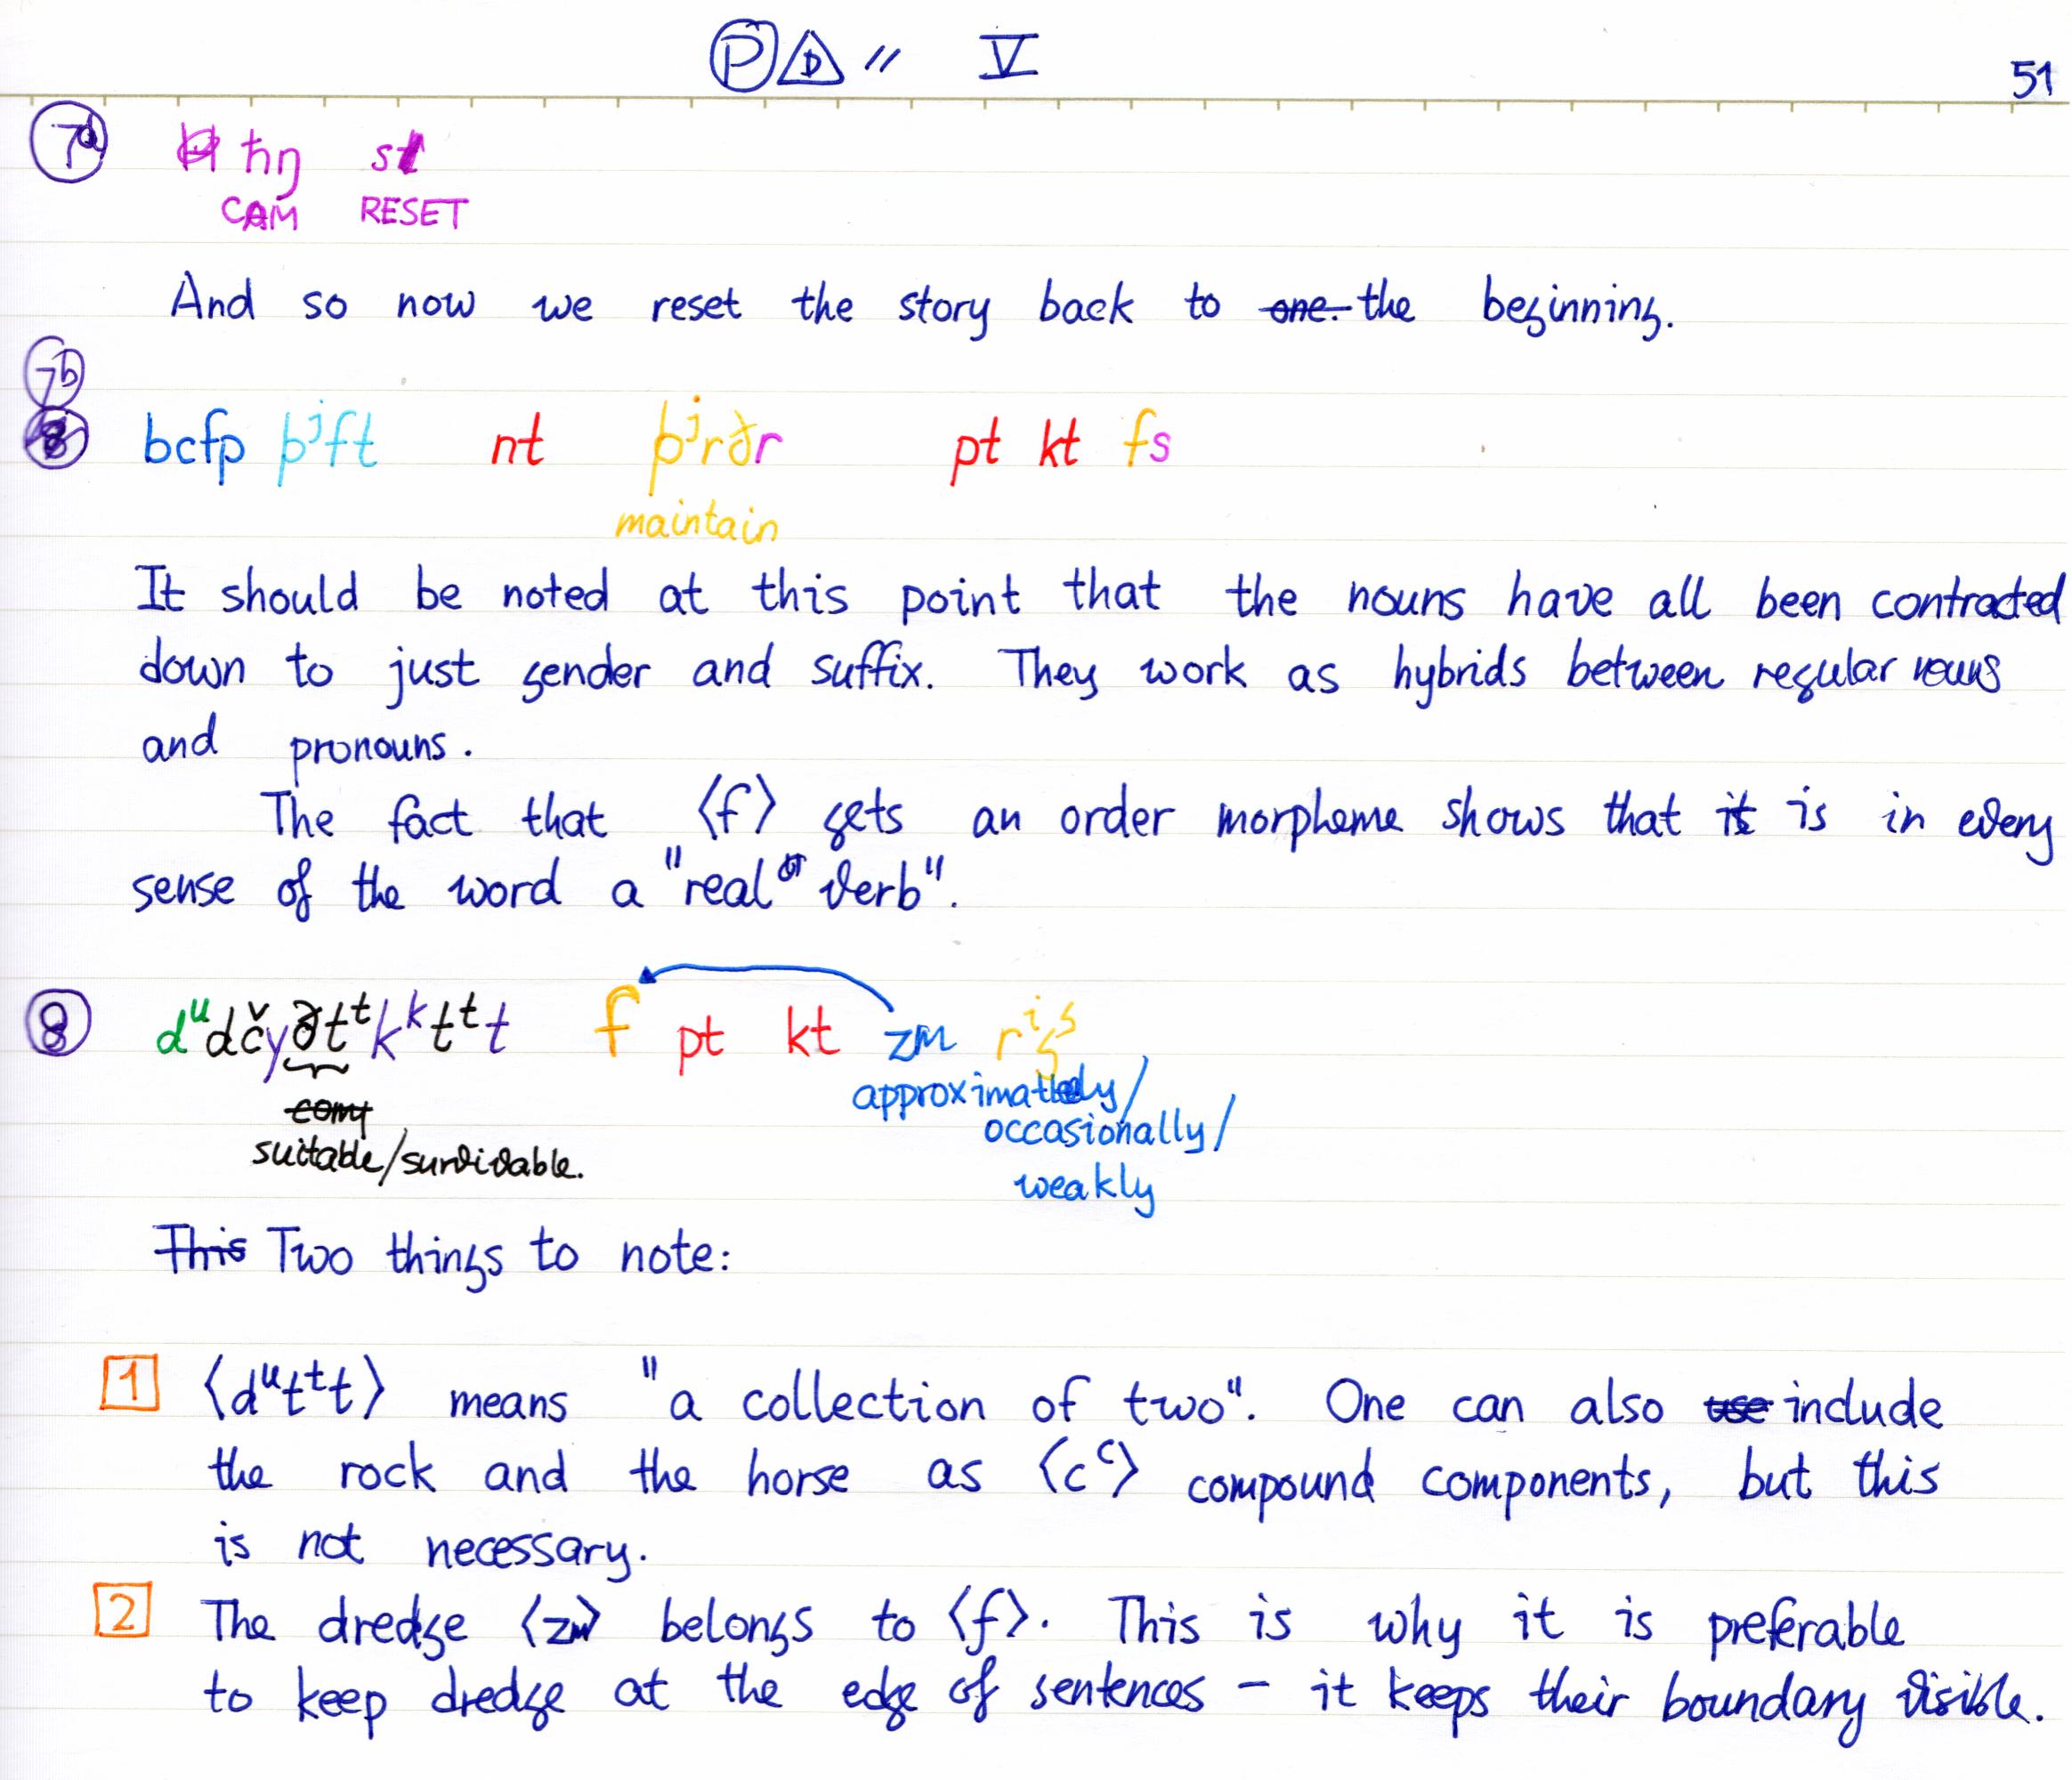 Ⓟ D // V
51
7a ħŋ s
CAM RESET
And so now we reset the story back to one. the beginning.
7b
8 bcfp þʲft nt þʲrðr pt kt fs
maintain
It should be noted at this point that the nouns have all been contracted
down to just gender and suffix. They work as hybrids between regular nouns
and pronouns.
The fact that ⟨f⟩ gets an order morpheme shows that it is in every
sense of the word a "real verb".
8 dᵘdčyðtᵗkᵏtᵗt f pt kt zm rⁱʒs
comf
suitable/survivable.
approximately/
occasionally/
weakly
This Two things to note:
1 ⟨dᵘtᵗt⟩ means "a collection of two". One can also use include
the rock and the horse as ⟨cᶜ⟩ compound components, but this
is not necessary.
2 The dredge ⟨zm⟩ belongs to ⟨f⟩. This is why it is preferable
to keep dredge at the edge of sentences – it keeps their boundary visible.